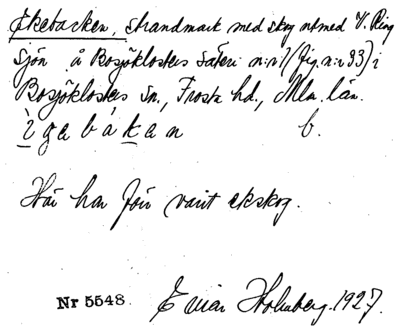 Ekebacken, strandmark med skog utmed V. Ring
sjön å Bosjöklosters säteri n:r 1 (fig. n:r 93) i
Bosjöklosters sn., Frosta hd., Mlm. län.
ìgabákan b.
Här har förr varit ekskog.
Nr 5548 Einar Holmberg. 1927.